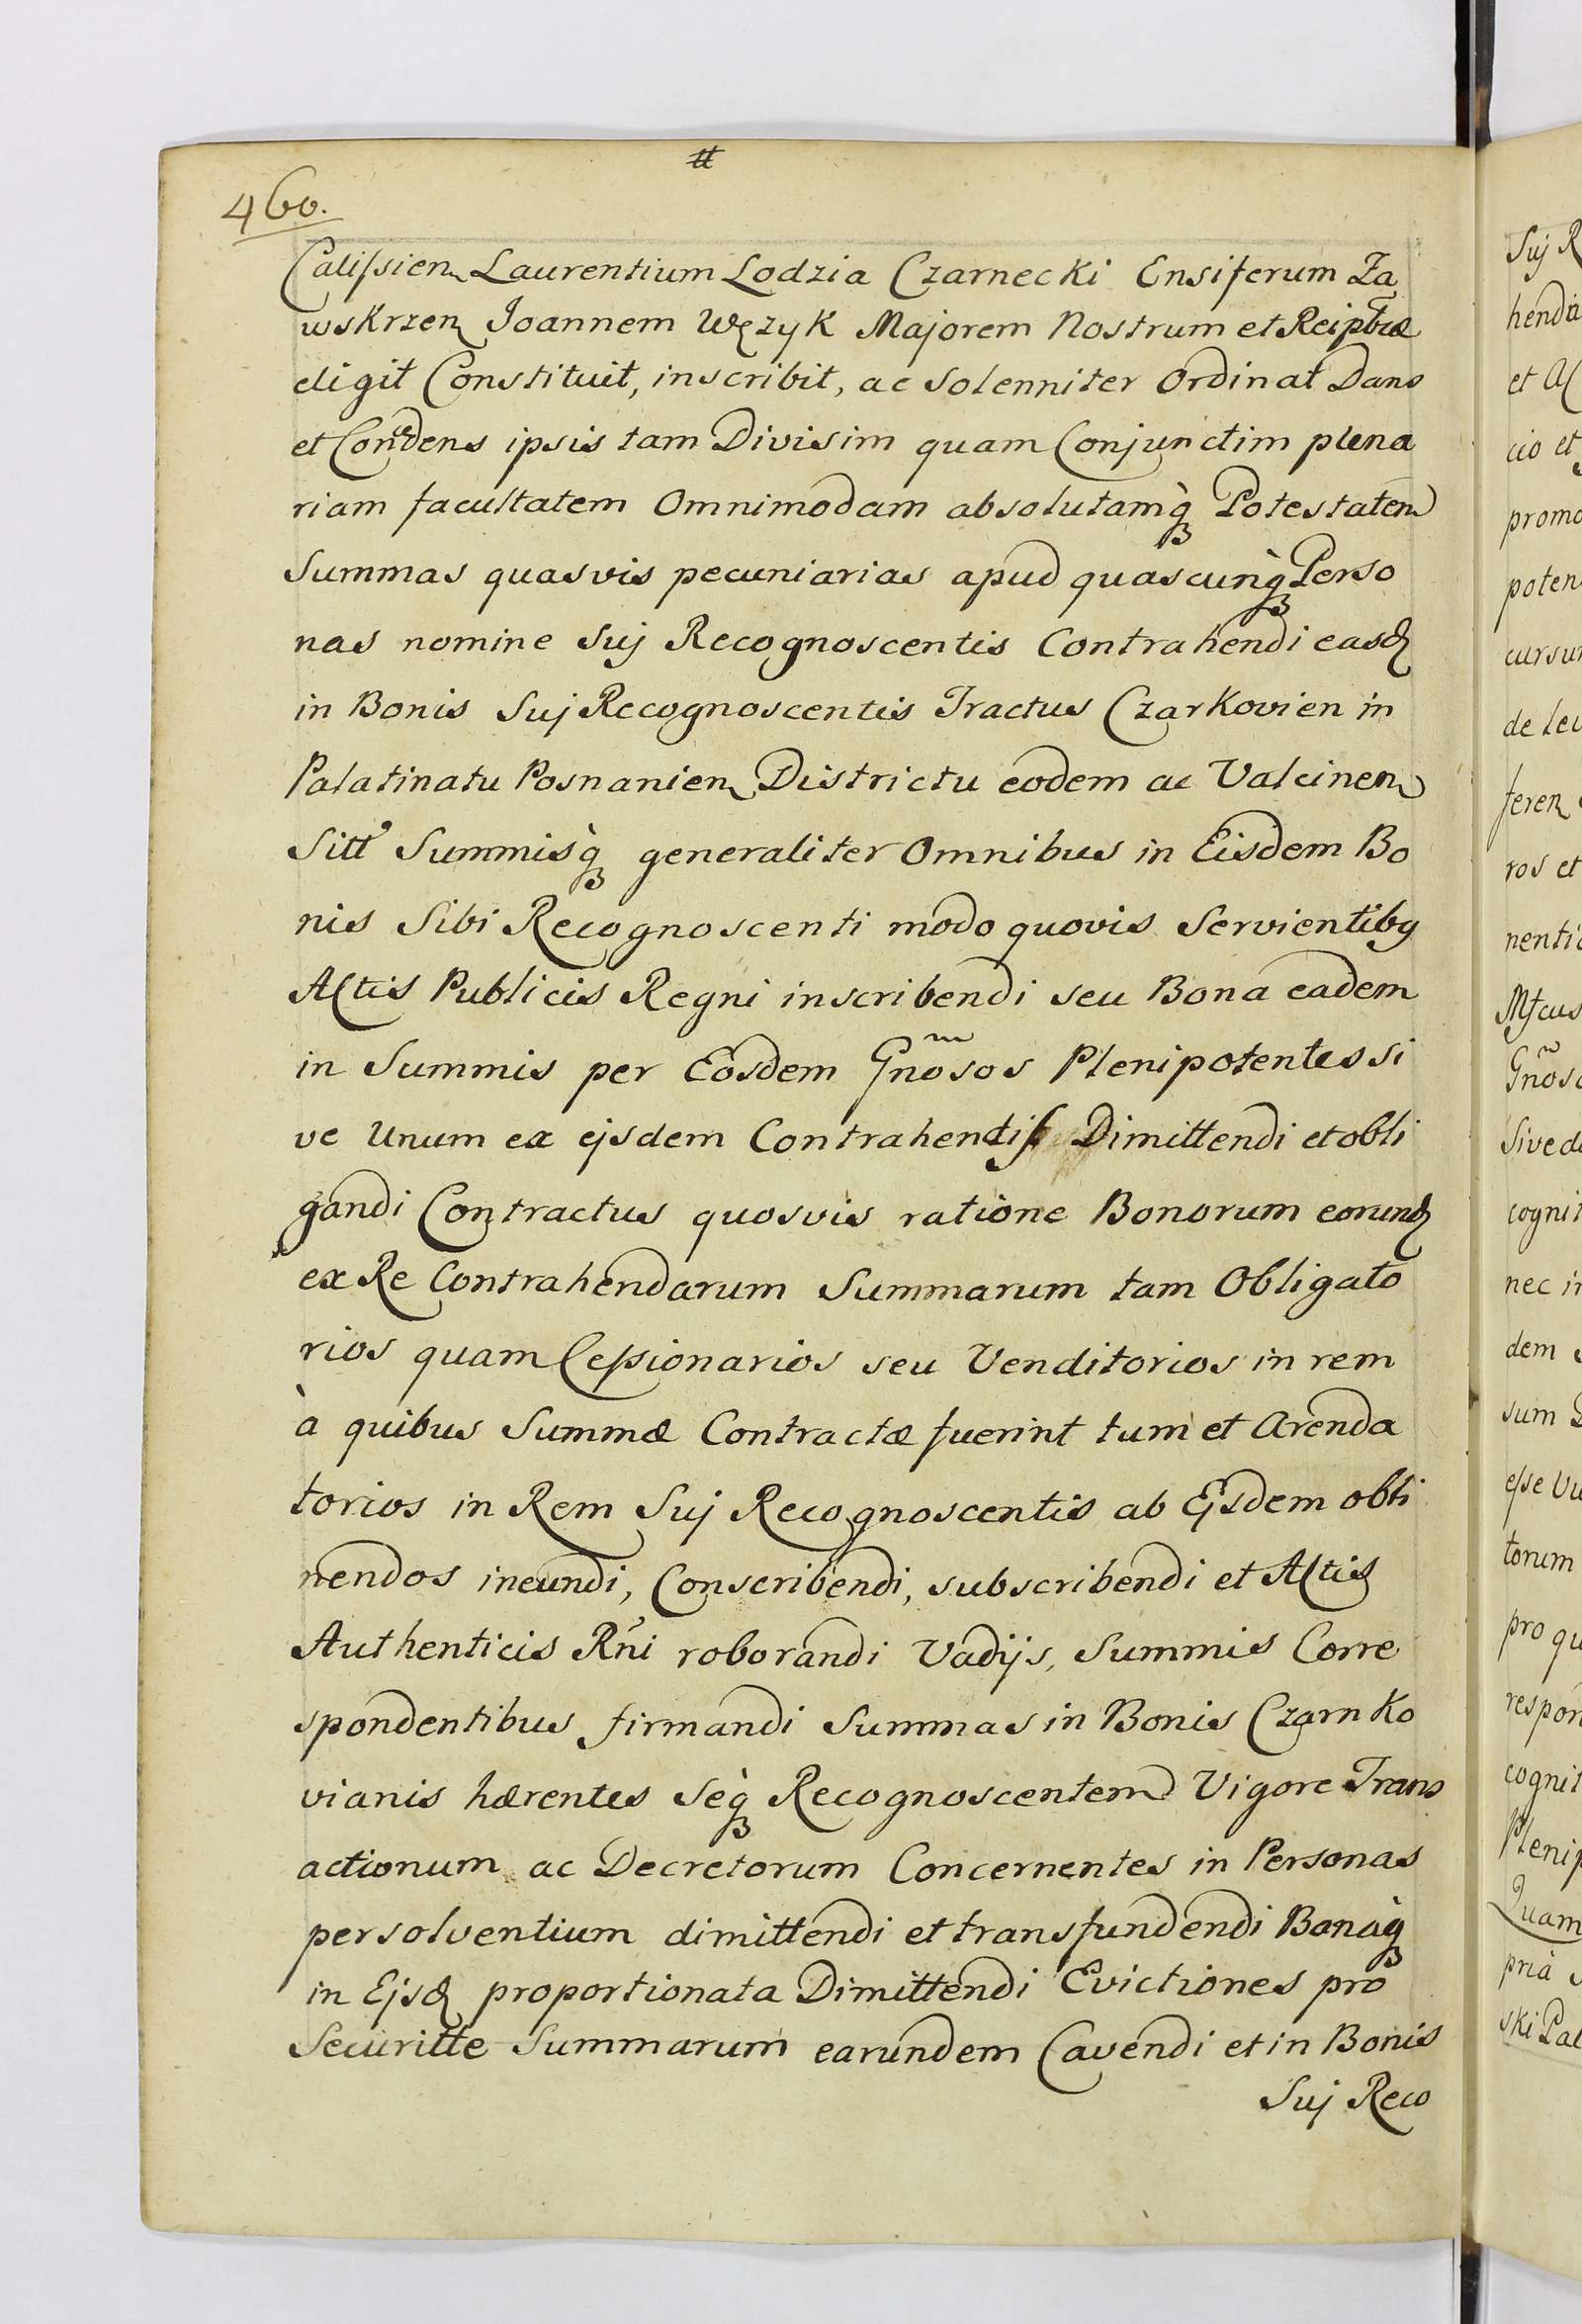 tt
460.
Calissien Laurentium Lodzia Czarnecki Ensiferum Za
wskrzen Joannem Węzyk Majorem Nostrum et Reiptcæ
eligit Constituit, inscribit, ac Solenniter Ordinat Dans
et Concedens ipsis tam Divisim quam Conjunctim plena
riam facultatem Omnimodam absolutamq̀3 Potestatem
Summas quasvis pecuniarias apud quascunq̀3 Perso
nas nomine Suj Recognoscentis Contrahendi easd
in Bonis Suj Recognoscentis Tractus Czarkovien in
Palatinatu Posnanien Districtu eodem ac Valcinen
Sitt Summisq̀3 generaliter Omnibus in Eisdem Bo
nis Sibi Recognoscenti modo quovis Servientibg
Actis Publicis Regni inscribendi seu Bona eadem
in Summis per Eosdem Gnosos Plenipotentes si
ve Unum ex ejsdem Contrahendis Dimittendi et obli
gandi Contractus quosvis ratione Bonorum eorund
ex Re Contrahendarum Summarum tam Obligato
rios quam Cessionarios seu Venditorios in rem
à quibus Summæ Contractæ fuerint tum et Arenda
torios in Rem Suj Recognoscentis ab Ejsdem obti
nendos ineundi, Conscribendi, subscribendi et Actis
Authenticis Rni roborandi Vadijs, Summis Corre
spondentibus firmandi Summas in Bonis Czarnko
vianis hærentes Seq̀3 Recognoscentem Vigore Trans
actionum ac Decretorum Concernentes in Personas
persolventium dimittendi et transfundendi Bonaq̀3
in Ejsd proportionata Dimittendi Evictiones pro
Securitte Summarum earundem Cavendi et in Bonis
Suj Reco
Suj R
henda
et Ac
cio et
promo
poten
cursum
de lev
feren
ros et
nentia
Mfcus
Gnoso
Sive d
cognit
nec in
dem
sum
esse
torum
pro qu
respon
cognit
Plenip
Quam
prià
ski Pal